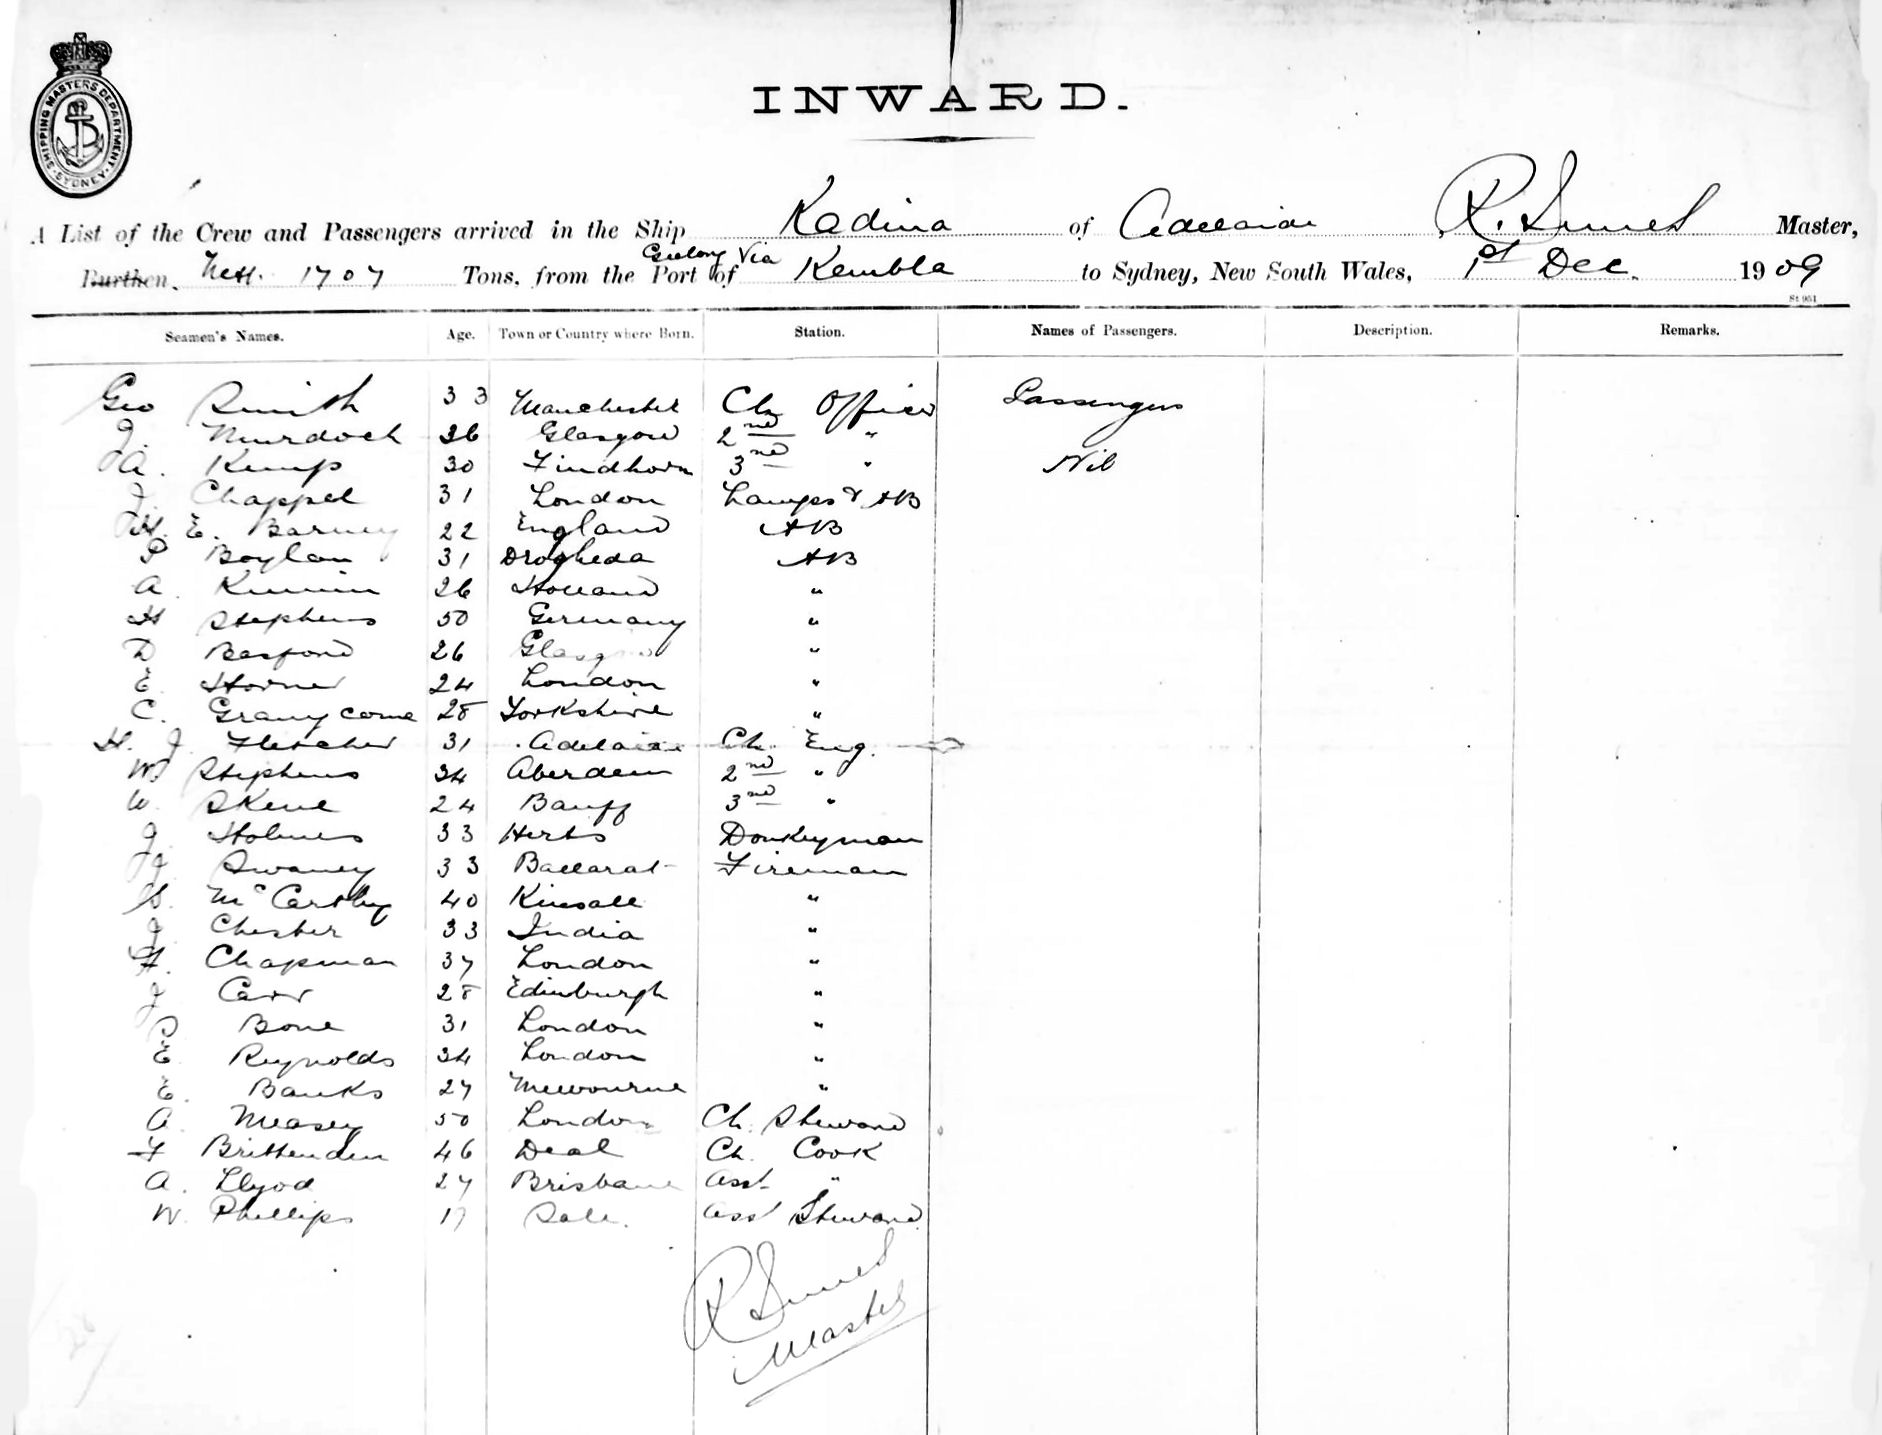 SHIPPING MASTERS DEPARTMENT
SYDNEY
INWARD.
A List of the Crew and Passengers arrived in the Ship Kadina of Adelaide R. Master,
Geelong Via
Burthen, Nett. 1707 Tons, from the Port of Kembla to Sydney, New South Wales, 1st Dec. 1909
St 951
Seamen's Names. Age. Town or Country where Born. Station. Names of Passengers. Description. Remarks.
Geo Smith 33 Manchester Ch Officer Passengers
J. Murdoch 36 Glasgow 2nd "
A. Kemp 30 Findhorn 3rd " Nil
J. Chappel 31 London Lamps & AB
E. Barney 22 England AB
P Boylan 31 Drogheda AB
A. 26 Holland "
H Stephens 50 Germany "
D 26 Glasgow "
E. Horner 24 London "
C. Grannycome 28 Yorkshire "
H. J. Fletcher 31 Adelaide Ch. Eng.
W Stephens 34 Aberdeen 2nd "
W. Skene 24 Banff 3rd "
J. Holmes 33 Herts Donkeyman
Swaney 33 Ballarat Fireman
McCarthy 40 Kinsale "
J. Chester 33 India "
F. Chapman 37 London "
J Carr 28 Edinburgh "
P Bone 31 London "
E. Reynolds 34 London "
E. Banks 27 Melbourne "
A. Measey 50 London Ch. Steward
F Brittenden 46 Deal Ch. Cook
A. Llyod 27 Brisbane Asst "
W. Phillips 17 Sale. Asst Steward
R
Master